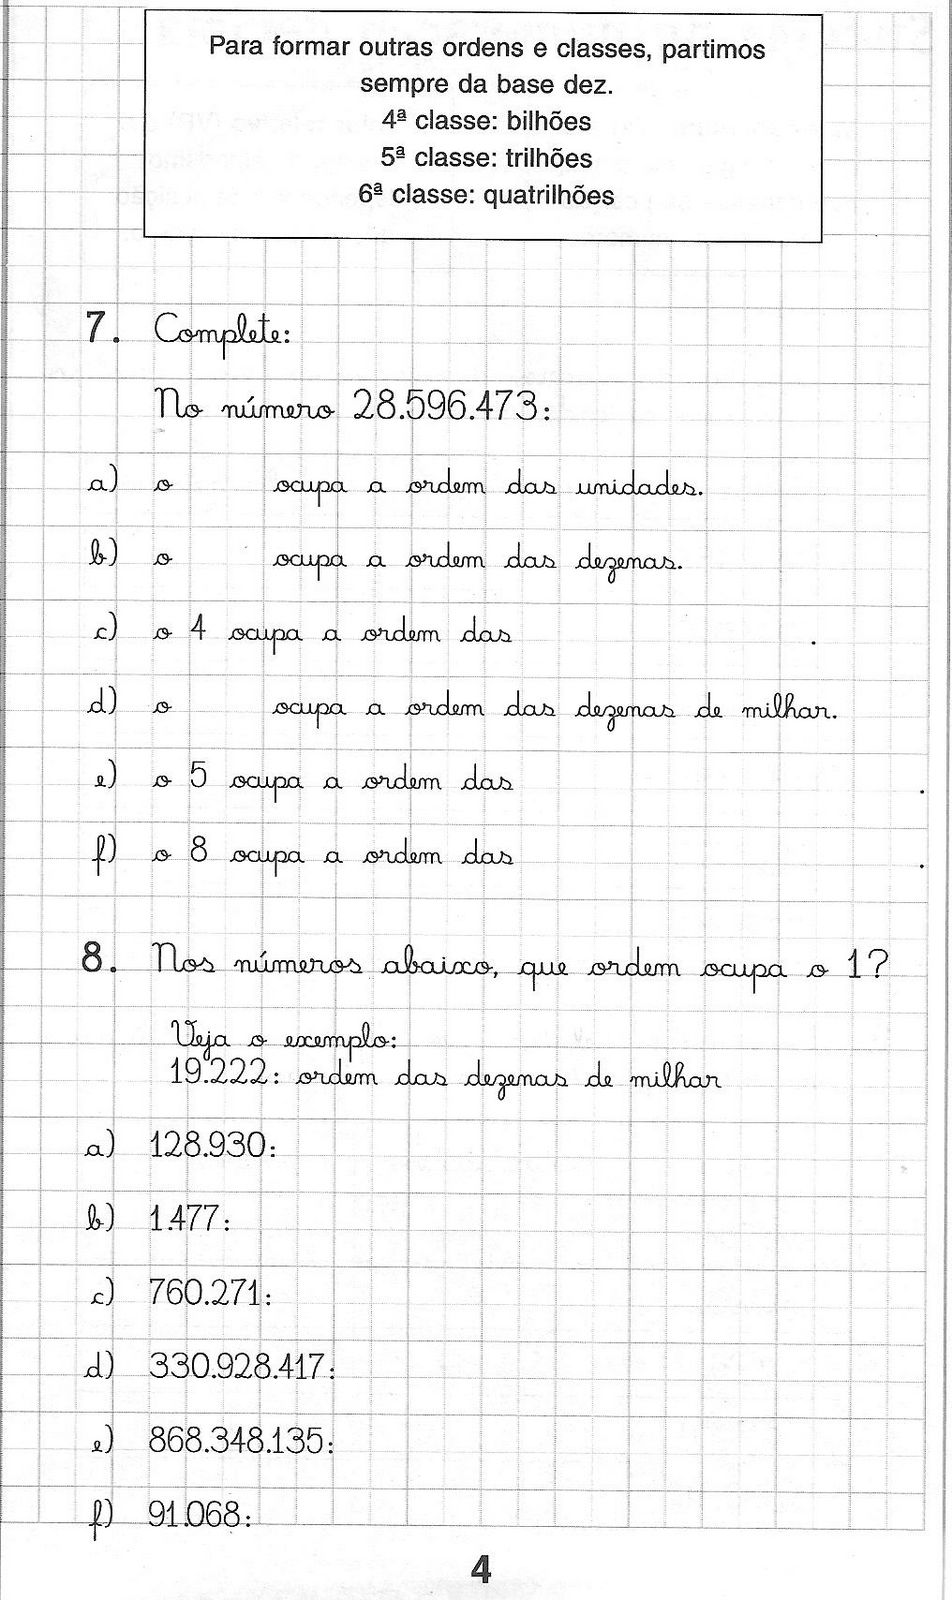 Para formar outras ordens e classes, partimos
sempre da base dez.
4ª classe: bilhões
5ª classe: trilhões
6ª classe: quatrilhões
7. Complete:
No número 28.596.473:
a) o ocupa a ordem das unidades.
b) o ocupa a ordem das dezenas.
c) o 4 ocupa a ordem das .
d) o ocupa a ordem das dezenas de milhar.
e) o 5 ocupa a ordem das .
f) o 8 ocupa a ordem das .
8. Nos números abaixo, que ordem ocupa o 1?
Veja o exemplo:
19.222: ordem das dezenas de milhar
a) 128.930:
b) 1.477:
c) 760.271:
d) 330.928.417:
e) 868.348.135:
f) 91.068:
4